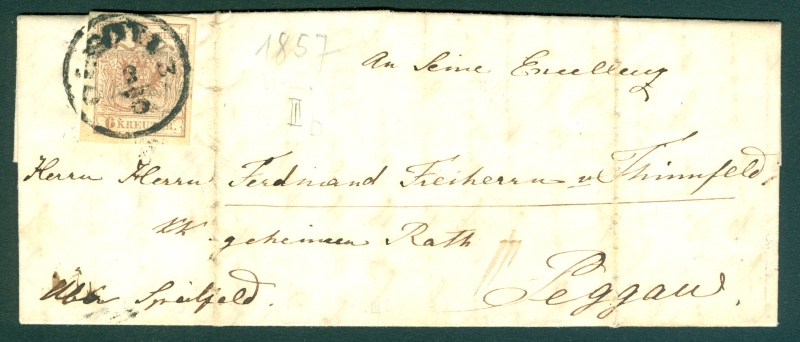 1857
An Seine Excellenz
II
6 KREUZER
Herrn Herrn Ferdinand Freiherrn v Thinnfeld,
KK geheimen Rath
Peggau.
über Spielfeld.